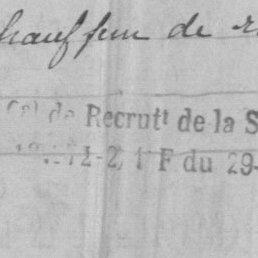 chauffeur de
de Recrut^t de la S
2-2, 1 F du 29-